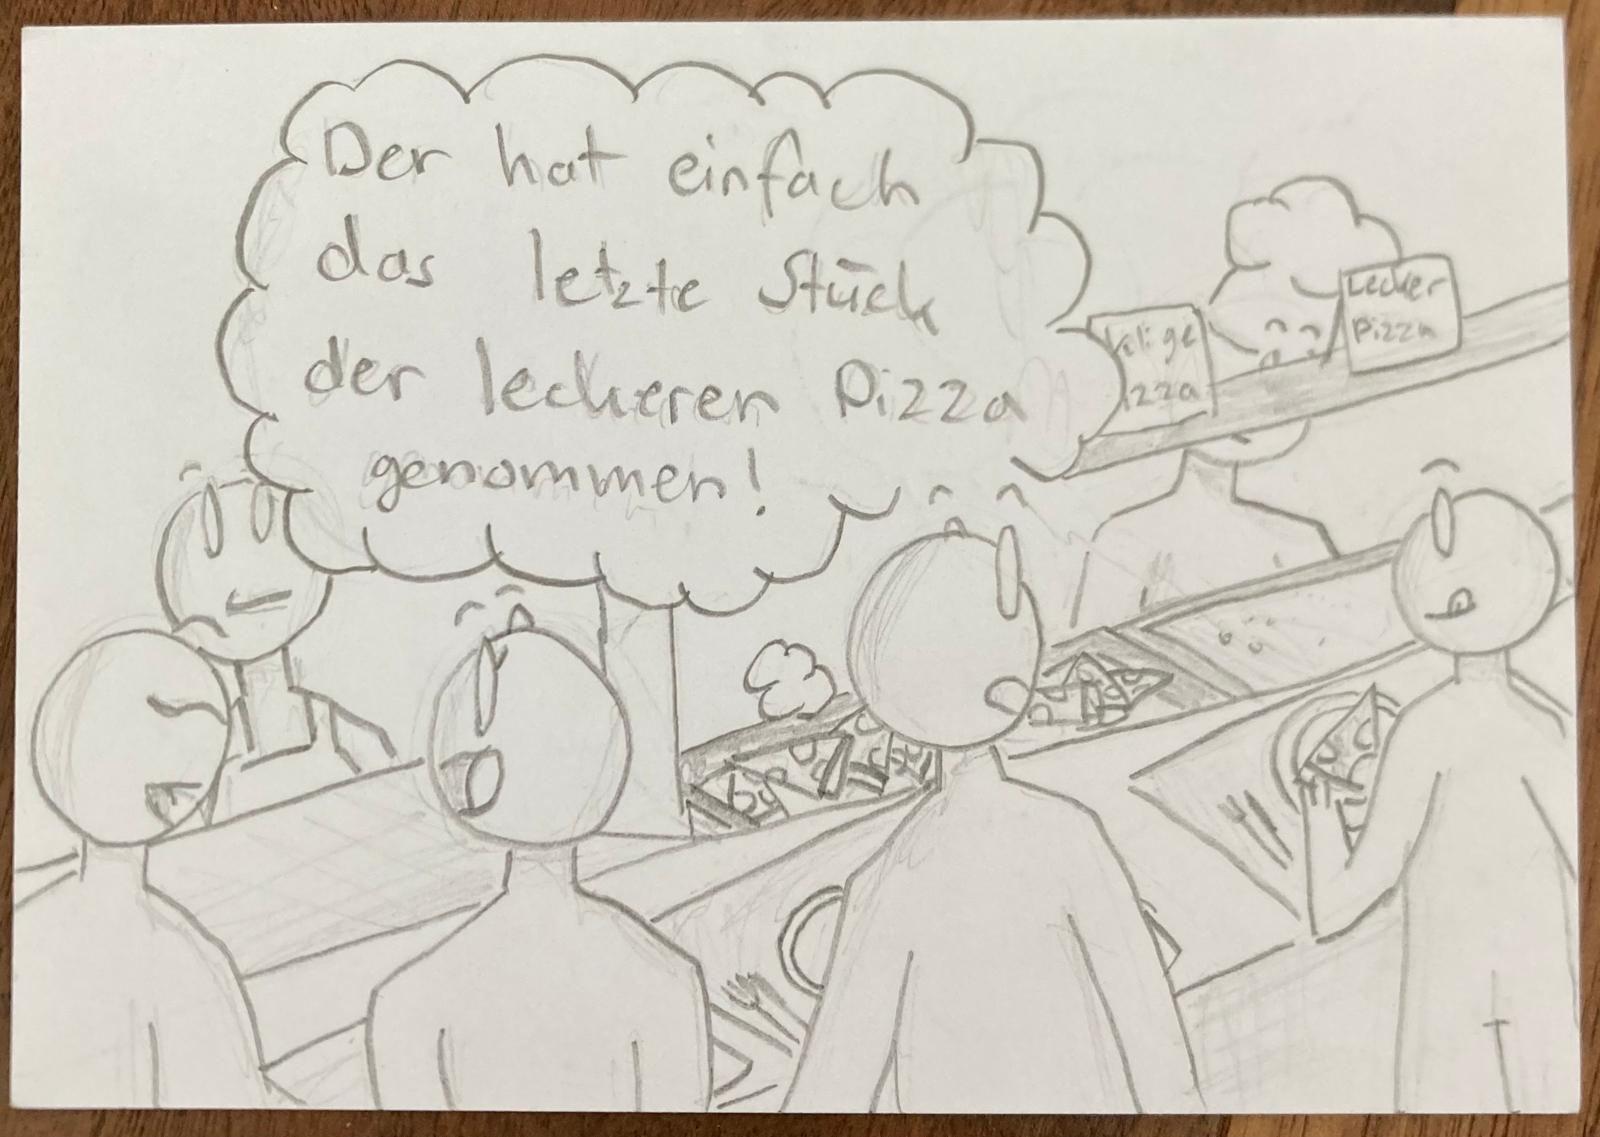 Der hat einfach
das letzte Stück
der leckeren Pizza
genommen!
izza
Lecker
Pizza